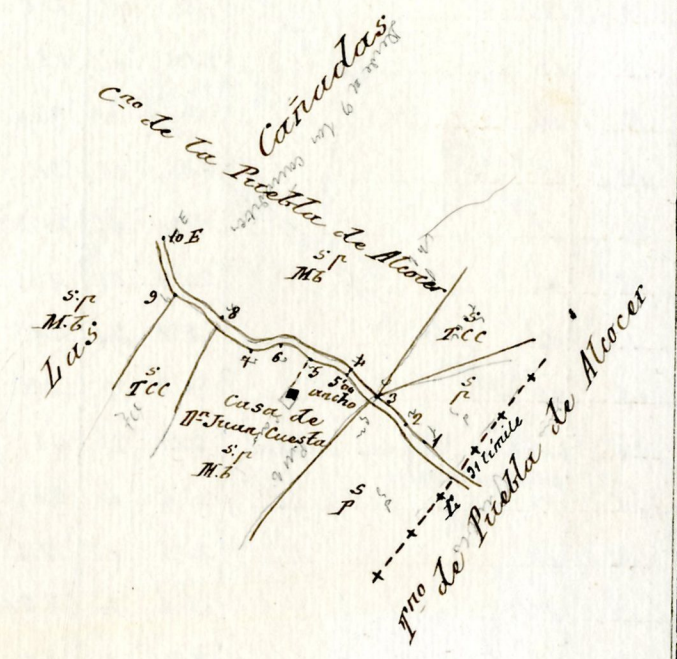 Cañadas
Cno de la Puebla de Alcocer
10 E
S.P
M.b
9
8
S.P
M.b
Las
S
TCC
7
6
5
5'00
ancho
4
3
2
1
S
TCC
S
P
Casa de
Dn Juan Cuesta
S.P
M.b
S
P
31 límite
E
Tno de Puebla de Alcocer